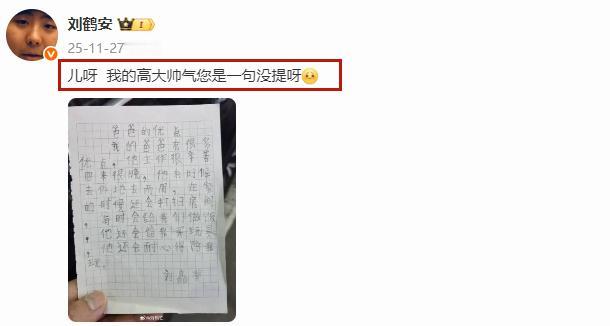 刘鹤安
25-11-27
儿呀 我的高大帅气您是一句没提呀
爸爸的优点
我的爸爸有很多
优点，他工作很辛苦
回来很晚，他有时候
去外地去两周，在家
的时候还会打扫房间
，有时会给我们做饭
，他还会给我买玩具
，他还会耐心得陪我
玩。
刘